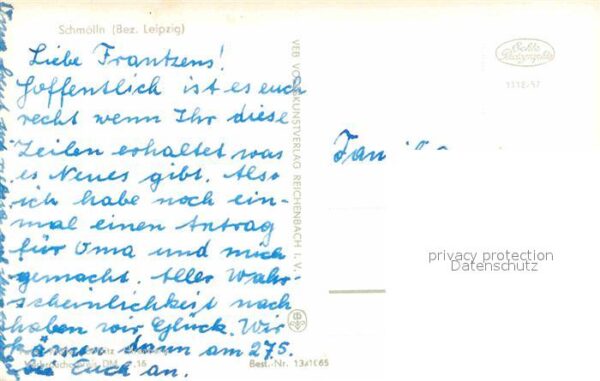 Schmölln (Bez. Leipzig)
Liebe Frantzens!
Hoffentlich ist es euch
recht wenn Ihr diese
Zeilen erhaltet was
es Neues gibt. Also
ich habe noch ein-
mal einen Antrag
für Oma und mich
gemacht. Aller Wahr-
scheinlichkeit nach
haben wir Glück. Wir
kämen dann am 27.5.
Euch an.
VEB VOLKSKUNSTVERLAG REICHENBACH I. V.
Best.-Nr. 13/1065
Echte
Photographie
Fam
privacy protection
Datenschutz